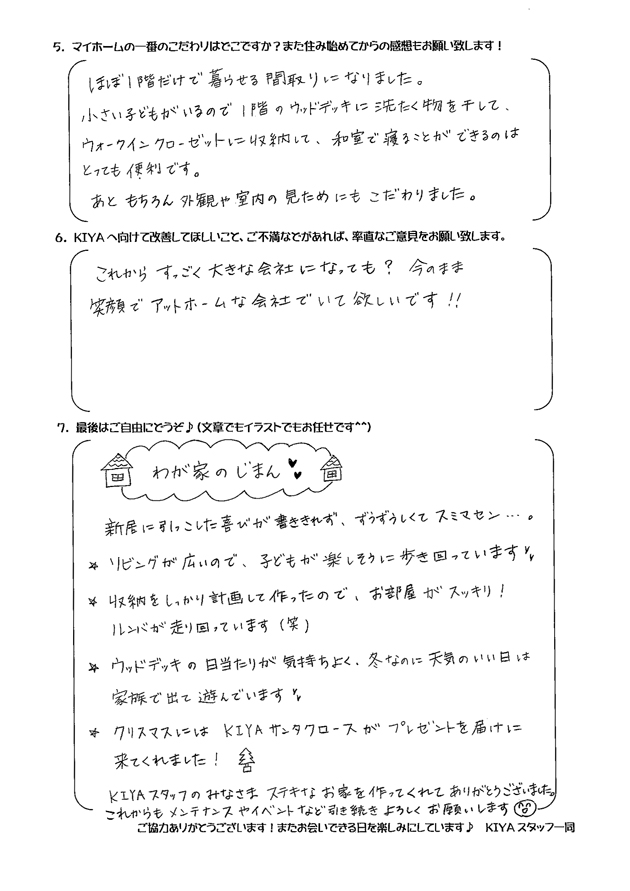 5. マイホームの一番のこだわりはどこですか？また住み始めてからの感想もお願い致します！
ほぼ1階だけで暮らせる間取りになりました。
小さい子どもがいるので1階のウッドデッキに洗たく物を干して、
ウォークインクローゼットに収納して、和室で寝ることができるのは
とっても便利です。
あともちろん外観や室内の見ためにもこだわりました。
6. KIYAへ向けて改善してほしいこと、ご不満などがあれば、率直なご意見をお願い致します。
これからすっごく大きな会社になっても？今のまま
笑顔でアットホームな会社でいて欲しいです!!
7. 最後はご自由にどうぞ♪(文章でもイラストでもお任せです^^)
わが家のじまん♥♥
新居に引っこした喜びが書ききれず、ずうずうしくてスミマセン…。
☆ リビングが広いので、子どもが楽しそうに歩き回っています♡
☆ 収納をしっかり計画して作ったので、お部屋がスッキリ！
ルンバが走り回っています(笑)
☆ ウッドデッキの日当たりが気持ちよく、冬なのに天気のいい日は
家族で出て遊んでいます♡
☆ クリスマスにはKIYAサンタクロースがプレゼントを届けに
来てくれました！
KIYAスタッフのみなさまステキなお家を作ってくれてありがとうございました。
これからもメンテナンスやイベントなど引き続きよろしくお願いします
ご協力ありがとうございます！またお会いできる日を楽しみにしています♪ KIYAスタッフ一同